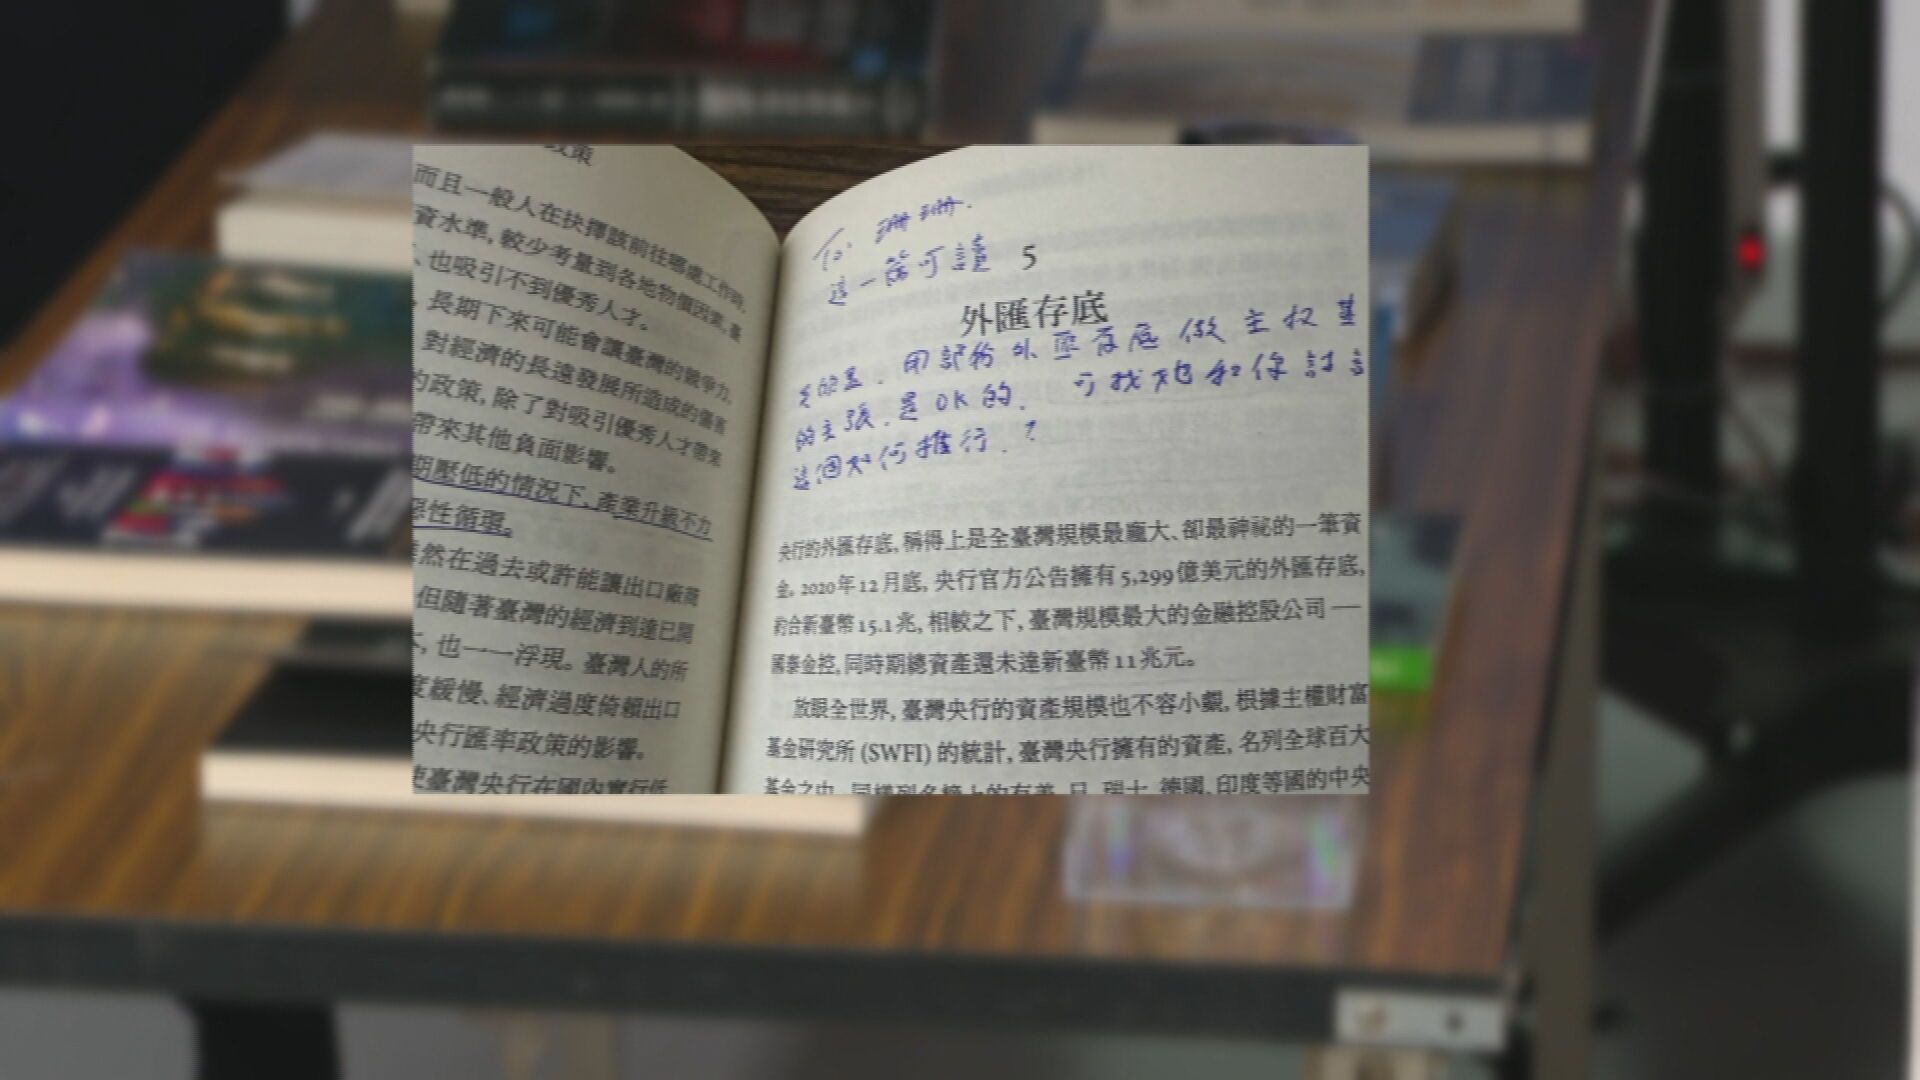 政策
而且一般人在抉擇該前往哪處工作時,
資水準, 較少考量到各地物價因素, 臺
、也吸引不到優秀人才。
長期下來可能會讓臺灣的競爭力,
對經濟的長遠發展所造成的傷害
的政策, 除了對吸引優秀人才帶來
帶來其他負面影響。
期壓低的情況下、產業升級不力
惡性循環。
雖然在過去或許能讓出口廠商
但隨著臺灣的經濟到達已開
也一一浮現。臺灣人的所
度緩慢、經濟過度倚賴出口
央行匯率政策的影響。
使臺灣央行在國內實行低
珊珊.
這一篇可讀 5
外匯存底
用部份外匯存底做主权基
的主張. 是OK的. 可找她和你討
這個如何推行.?
央行的外匯存底, 稱得上是全臺灣規模最龐大、卻最神祕的一筆資
金。2020年12月底, 央行官方公告擁有5,299億美元的外匯存底,
約合新臺幣15.1兆, 相較之下, 臺灣規模最大的金融控股公司 ──
國泰金控, 同時期總資產還未達新臺幣11兆元。
放眼全世界, 臺灣央行的資產規模也不容小覷, 根據主權財富
基金研究所 (SWFI) 的統計, 臺灣央行擁有的資產, 名列全球百大
基金之中, 同樣列名榜上的有美、日、瑞士、德國、印度等國的中央